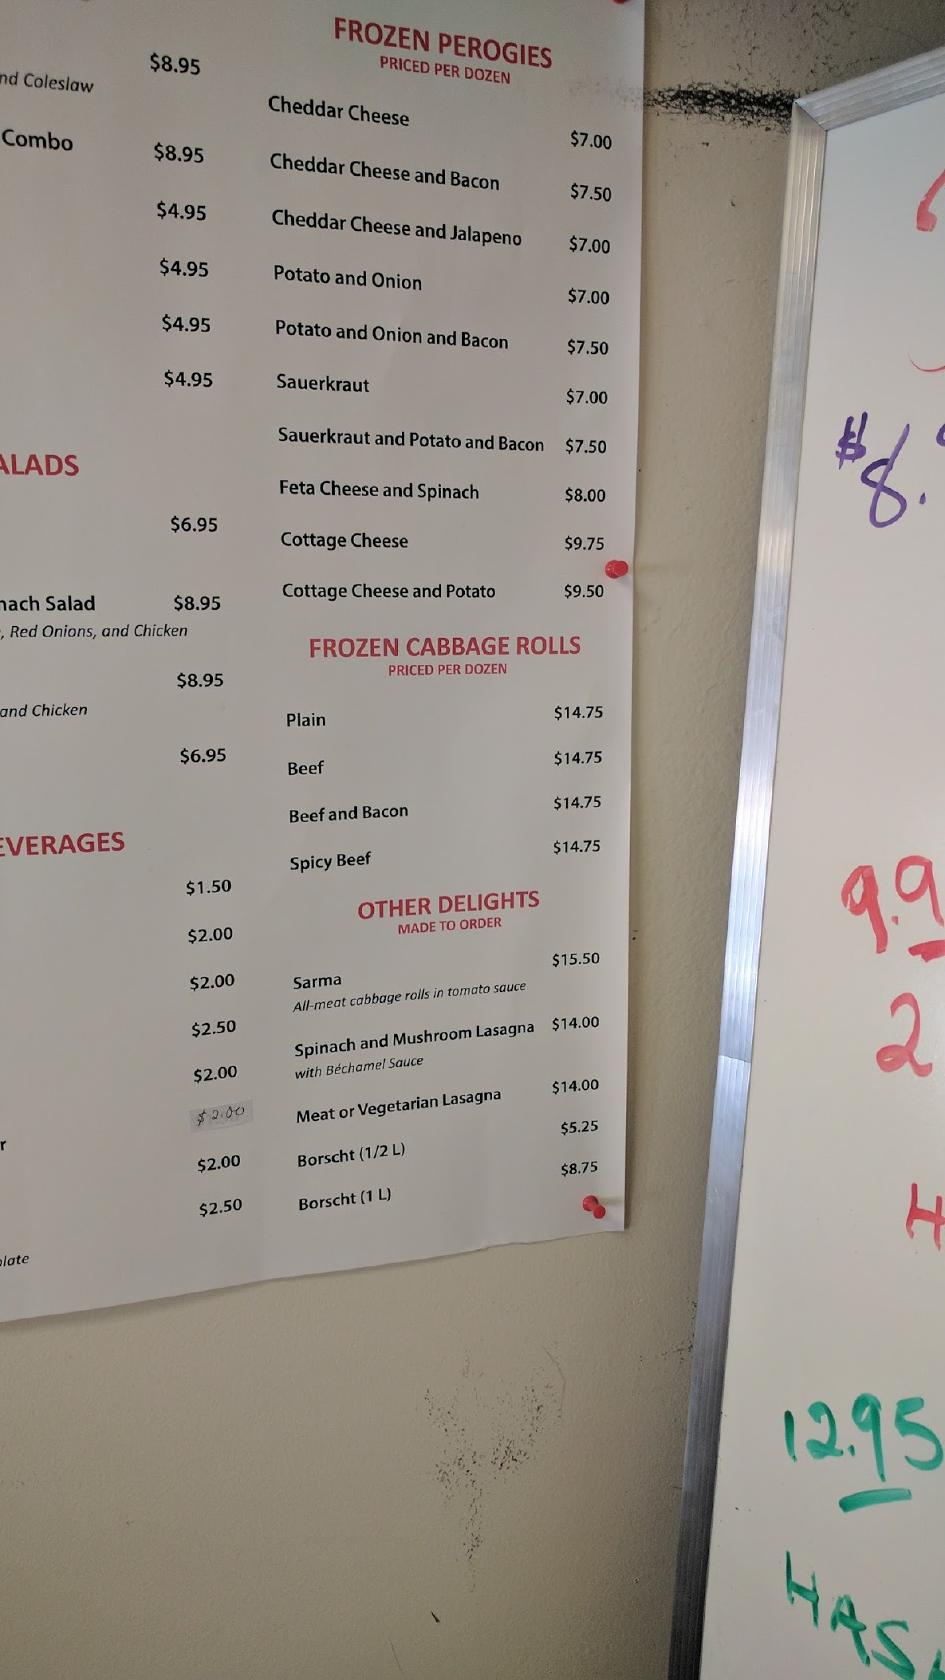 $8.95
nd Coleslaw
Combo
$8.95
$4.95
$4.95
$4.95
$4.95
ALADS
$6.95
nach Salad $8.95
, Red Onions, and Chicken
$8.95
and Chicken
$6.95
EVERAGES
$1.50
$2.00
$2.00
$2.50
$2.00
$2.00
r
$2.00
$2.50
olate
FROZEN PEROGIES
PRICED PER DOZEN
Cheddar Cheese $7.00
Cheddar Cheese and Bacon $7.50
Cheddar Cheese and Jalapeno $7.00
Potato and Onion $7.00
Potato and Onion and Bacon $7.50
Sauerkraut $7.00
Sauerkraut and Potato and Bacon $7.50
Feta Cheese and Spinach $8.00
Cottage Cheese $9.75
Cottage Cheese and Potato $9.50
FROZEN CABBAGE ROLLS
PRICED PER DOZEN
Plain $14.75
Beef $14.75
Beef and Bacon $14.75
Spicy Beef $14.75
OTHER DELIGHTS
MADE TO ORDER
Sarma $15.50
All-meat cabbage rolls in tomato sauce
Spinach and Mushroom Lasagna $14.00
with Béchamel Sauce
Meat or Vegetarian Lasagna $14.00
Borscht (1/2 L) $5.25
Borscht (1 L) $8.75
$8.
9.9
2
H
12.95
HAS